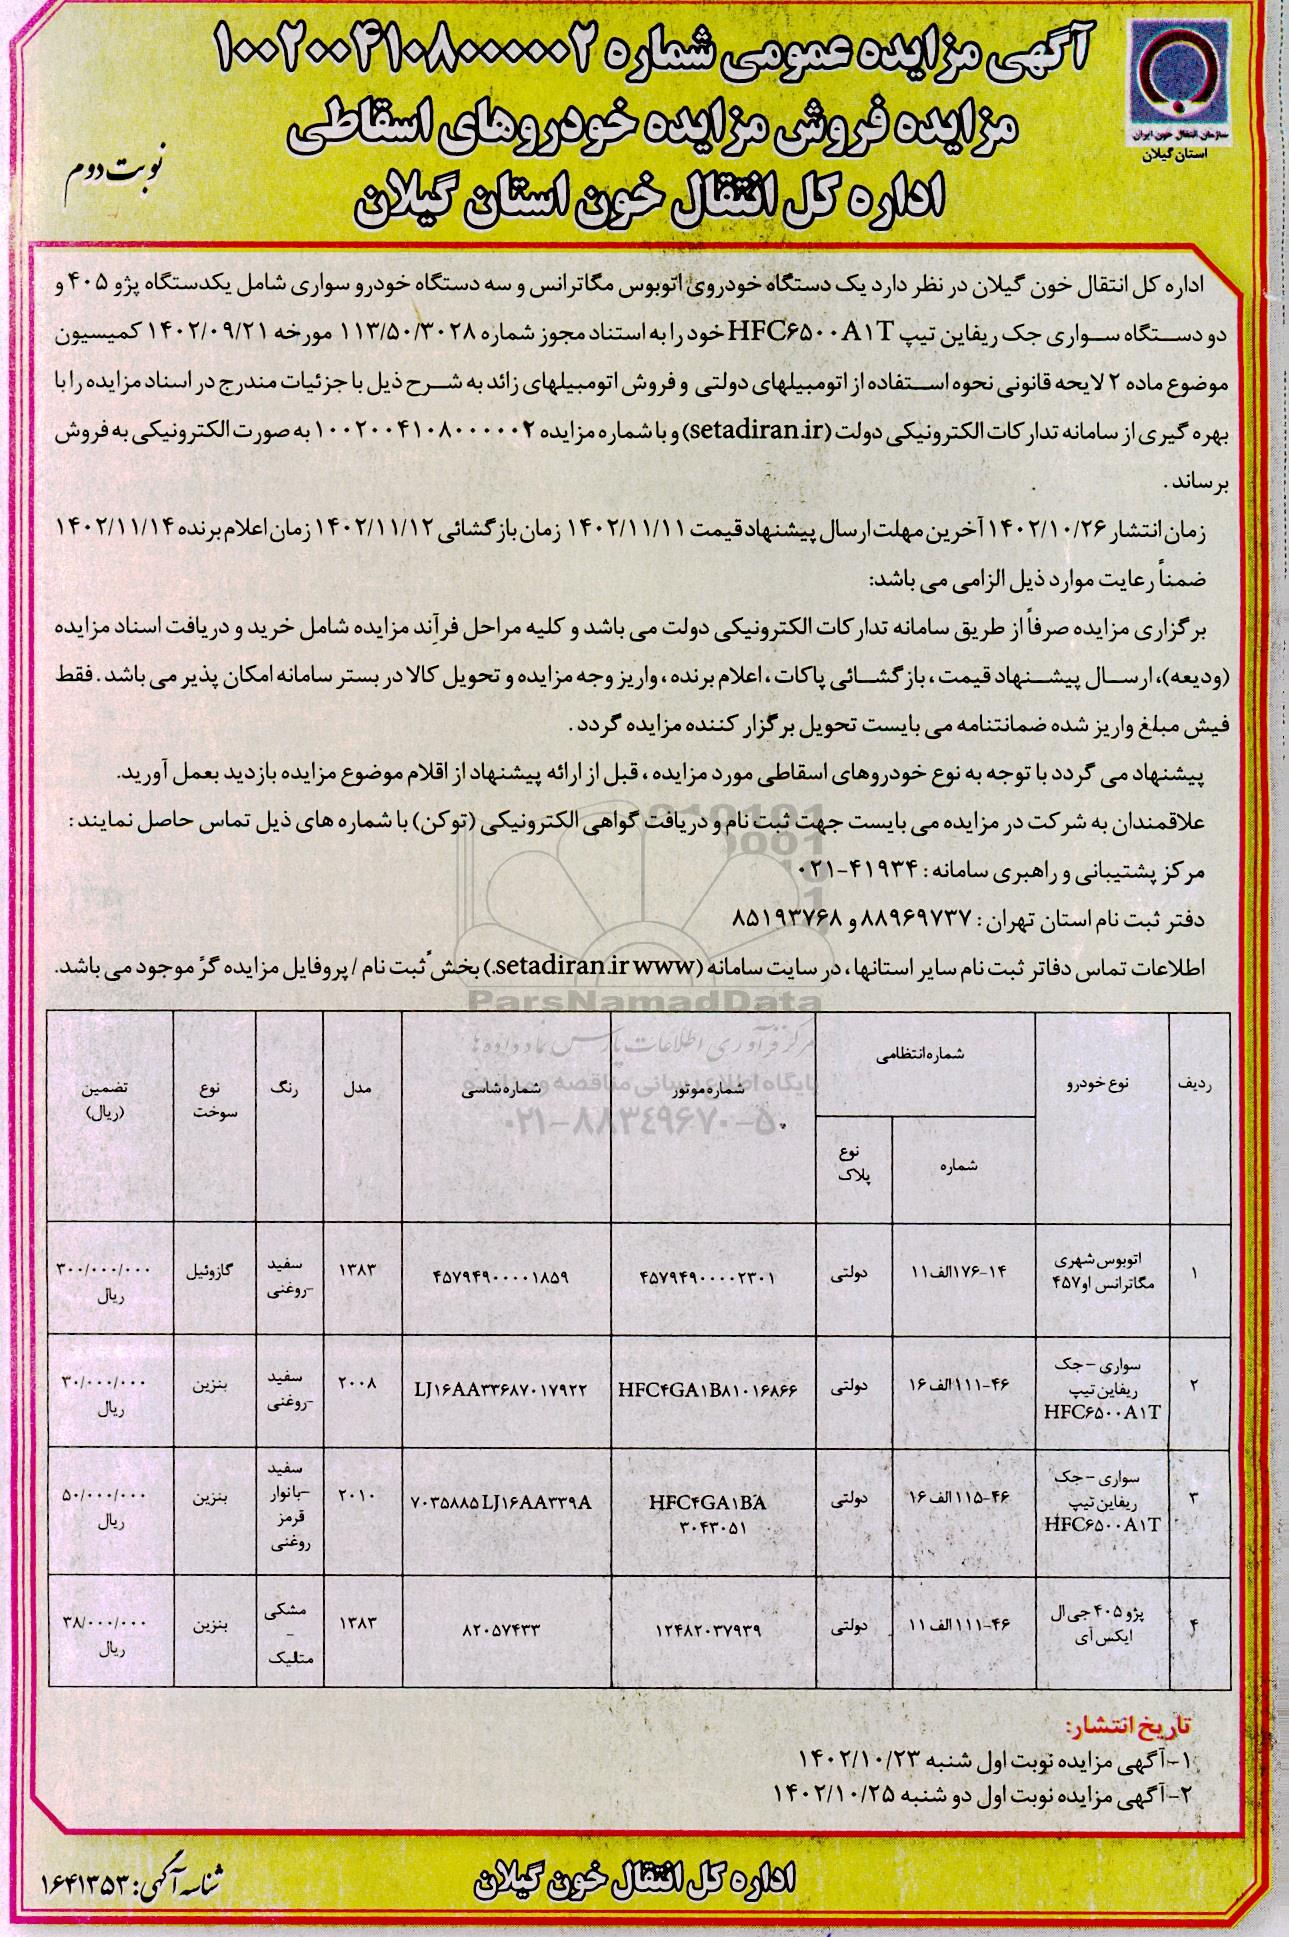 آگهی مزایده عمومی شماره ۱۰۰۲۰۰۴۱۰۸۰۰۰۰۰۲
مزایده فروش مزایده خودروهای اسقاطی
اداره کل انتقال خون استان گیلان
سازمان انتقال خون ایران
استان گیلان
نوبت دوم
اداره کل انتقال خون گیلان در نظر دارد یک دستگاه خودروی اتوبوس مگاترانس و سه دستگاه خودرو سواری شامل یکدستگاه پژو ۴۰۵ و
دو دستگاه سواری جک ریفاین تیپ HFC۶۵۰۰A۱T خود را به استناد مجوز شماره ۱۱۳/۵۰/۳۰۲۸ مورخه ۱۴۰۲/۰۹/۲۱ کمیسیون
موضوع ماده ۲ لایحه قانونی نحوه استفاده از اتومبیلهای دولتی و فروش اتومبیلهای زائد به شرح ذیل با جزئیات مندرج در اسناد مزایده را با
بهره گیری از سامانه تدارکات الکترونیکی دولت (setadiran.ir) و با شماره مزایده ۱۰۰۲۰۰۴۱۰۸۰۰۰۰۰۲ به صورت الکترونیکی به فروش
برساند .
زمان انتشار ۱۴۰۲/۱۰/۲۶ آخرین مهلت ارسال پیشنهاد قیمت ۱۴۰۲/۱۱/۱۱ زمان بازگشائی ۱۴۰۲/۱۱/۱۲ زمان اعلام برنده ۱۴۰۲/۱۱/۱۴
ضمناً رعایت موارد ذیل الزامی می باشد:
برگزاری مزایده صرفاً از طریق سامانه تدارکات الکترونیکی دولت می باشد و کلیه مراحل فرآِند مزایده شامل خرید و دریافت اسناد مزایده
(ودیعه)، ارسال پیشنهاد قیمت ، بازگشائی پاکات ، اعلام برنده ، واریز وجه مزایده و تحویل کالا در بستر سامانه امکان پذیر می باشد . فقط
فیش مبلغ واریز شده ضمانتنامه می بایست تحویل برگزار کننده مزایده گردد .
پیشنهاد می گردد با توجه به نوع خودروهای اسقاطی مورد مزایده ، قبل از ارائه پیشنهاد از اقلام موضوع مزایده بازدید بعمل آورید.
علاقمندان به شرکت در مزایده می بایست جهت ثبت نام و دریافت گواهی الکترونیکی (توکن) با شماره های ذیل تماس حاصل نمایند :
مرکز پشتیبانی و راهبری سامانه : ۴۱۹۳۴-۰۲۱
دفتر ثبت نام استان تهران : ۸۸۹۶۹۷۳۷ و ۸۵۱۹۳۷۶۸
اطلاعات تماس دفاتر ثبت نام سایر استانها ، در سایت سامانه (setadiran.ir www.) بخش ًثبت نام / پروفایل مزایده گرً موجود می باشد.
ParsNamadData
مرکز فرآوری اطلاعات پارس نماد داده ها
پایگاه اطلاع رسانی مناقصه و مزایده
۰۲۱-۸۸۳۴۹۶۷۰-۵
ردیف نوع خودرو شماره انتظامی شماره موتور شماره شاسی مدل رنگ نوع سوخت تضمین (ریال)
شماره نوع پلاک
۱ اتوبوس شهری مگاترانس او۴۵۷ ۱۴-۱۷۶الف۱۱ دولتی ۴۵۷۹۴۹۰۰۰۰۲۳۰۱ ۴۵۷۹۴۹۰۰۰۰۱۸۵۹ ۱۳۸۳ سفید -روغنی گازوئیل ۳۰۰/۰۰۰/۰۰۰ ریال
۲ سواری - جک ریفاین تیپ HFC۶۵۰۰A۱T ۴۶-۱۱۱الف ۱۶ دولتی HFC۴GA۱B۸۱۰۱۶۸۶۶ LJ۱۶AA۳۳۶۸۷۰۱۷۹۲۲ ۲۰۰۸ سفید -روغنی بنزین ۳۰/۰۰۰/۰۰۰ ریال
۳ سواری - جک ریفاین تیپ HFC۶۵۰۰A۱T ۴۶-۱۱۵الف ۱۶ دولتی HFC۴GA۱BA ۳۰۴۳۰۵۱ ۷۰۳۵۸۸۵LJ۱۶AA۳۳۹A ۲۰۱۰ سفید -بانوار قرمز روغنی بنزین ۵۰/۰۰۰/۰۰۰ ریال
۴ پژو ۴۰۵ جی ال ایکس آی ۴۶-۱۱۱الف ۱۱ دولتی ۱۲۴۸۲۰۳۷۹۳۹ ۸۲۰۵۷۴۳۳ ۱۳۸۳ مشکی - متالیک بنزین ۳۸/۰۰۰/۰۰۰ ریال
تاریخ انتشار:
۱-آگهی مزایده نوبت اول شنبه ۱۴۰۲/۱۰/۲۳
۲-آگهی مزایده نوبت اول دو شنبه ۱۴۰۲/۱۰/۲۵
اداره کل انتقال خون گیلان
شناسه آگهی: ۱۶۴۱۳۵۳